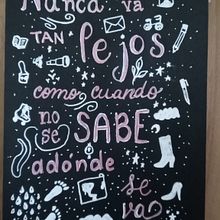 Nunca va
TAN lejos
como cuando
no se SABE
adónde
se
va